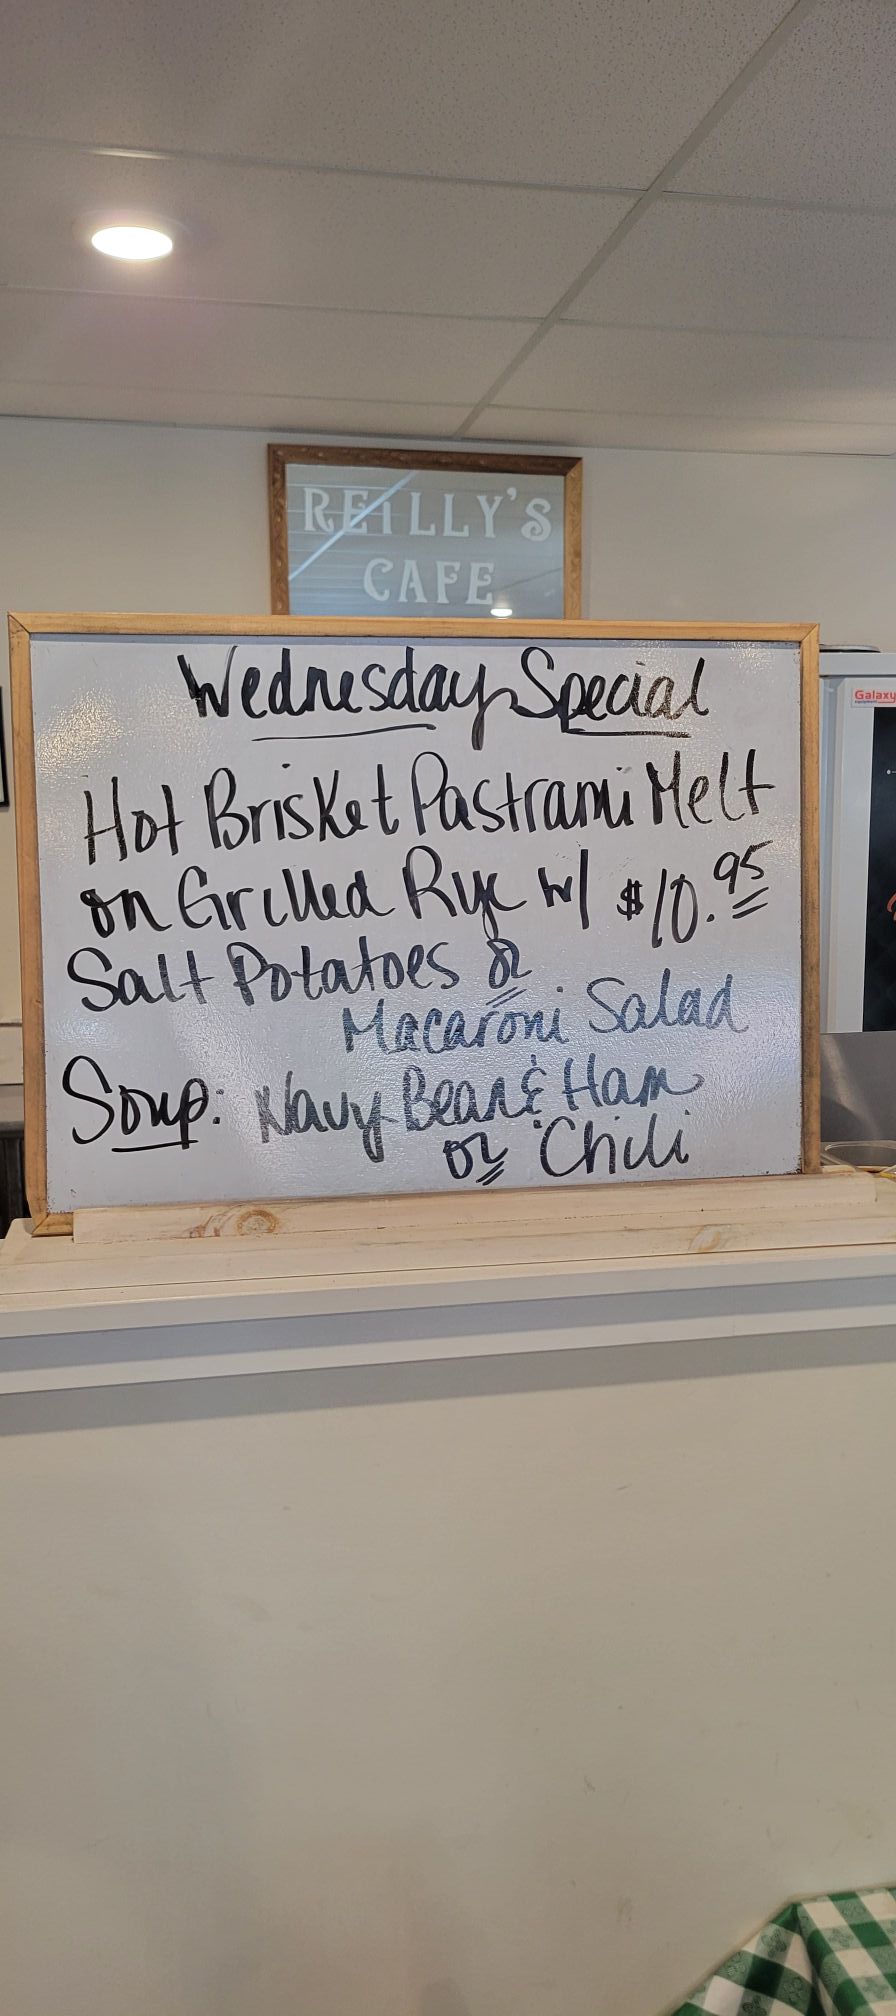 REILLY'S
CAFE
Wednesday Special
Hot Brisket Pastrami Melt
on Grilled Rye w/ $10.95
Salt Potatoes or
Macaroni Salad
Soup: Navy Bean & Ham
or Chili
Galaxy
equipment